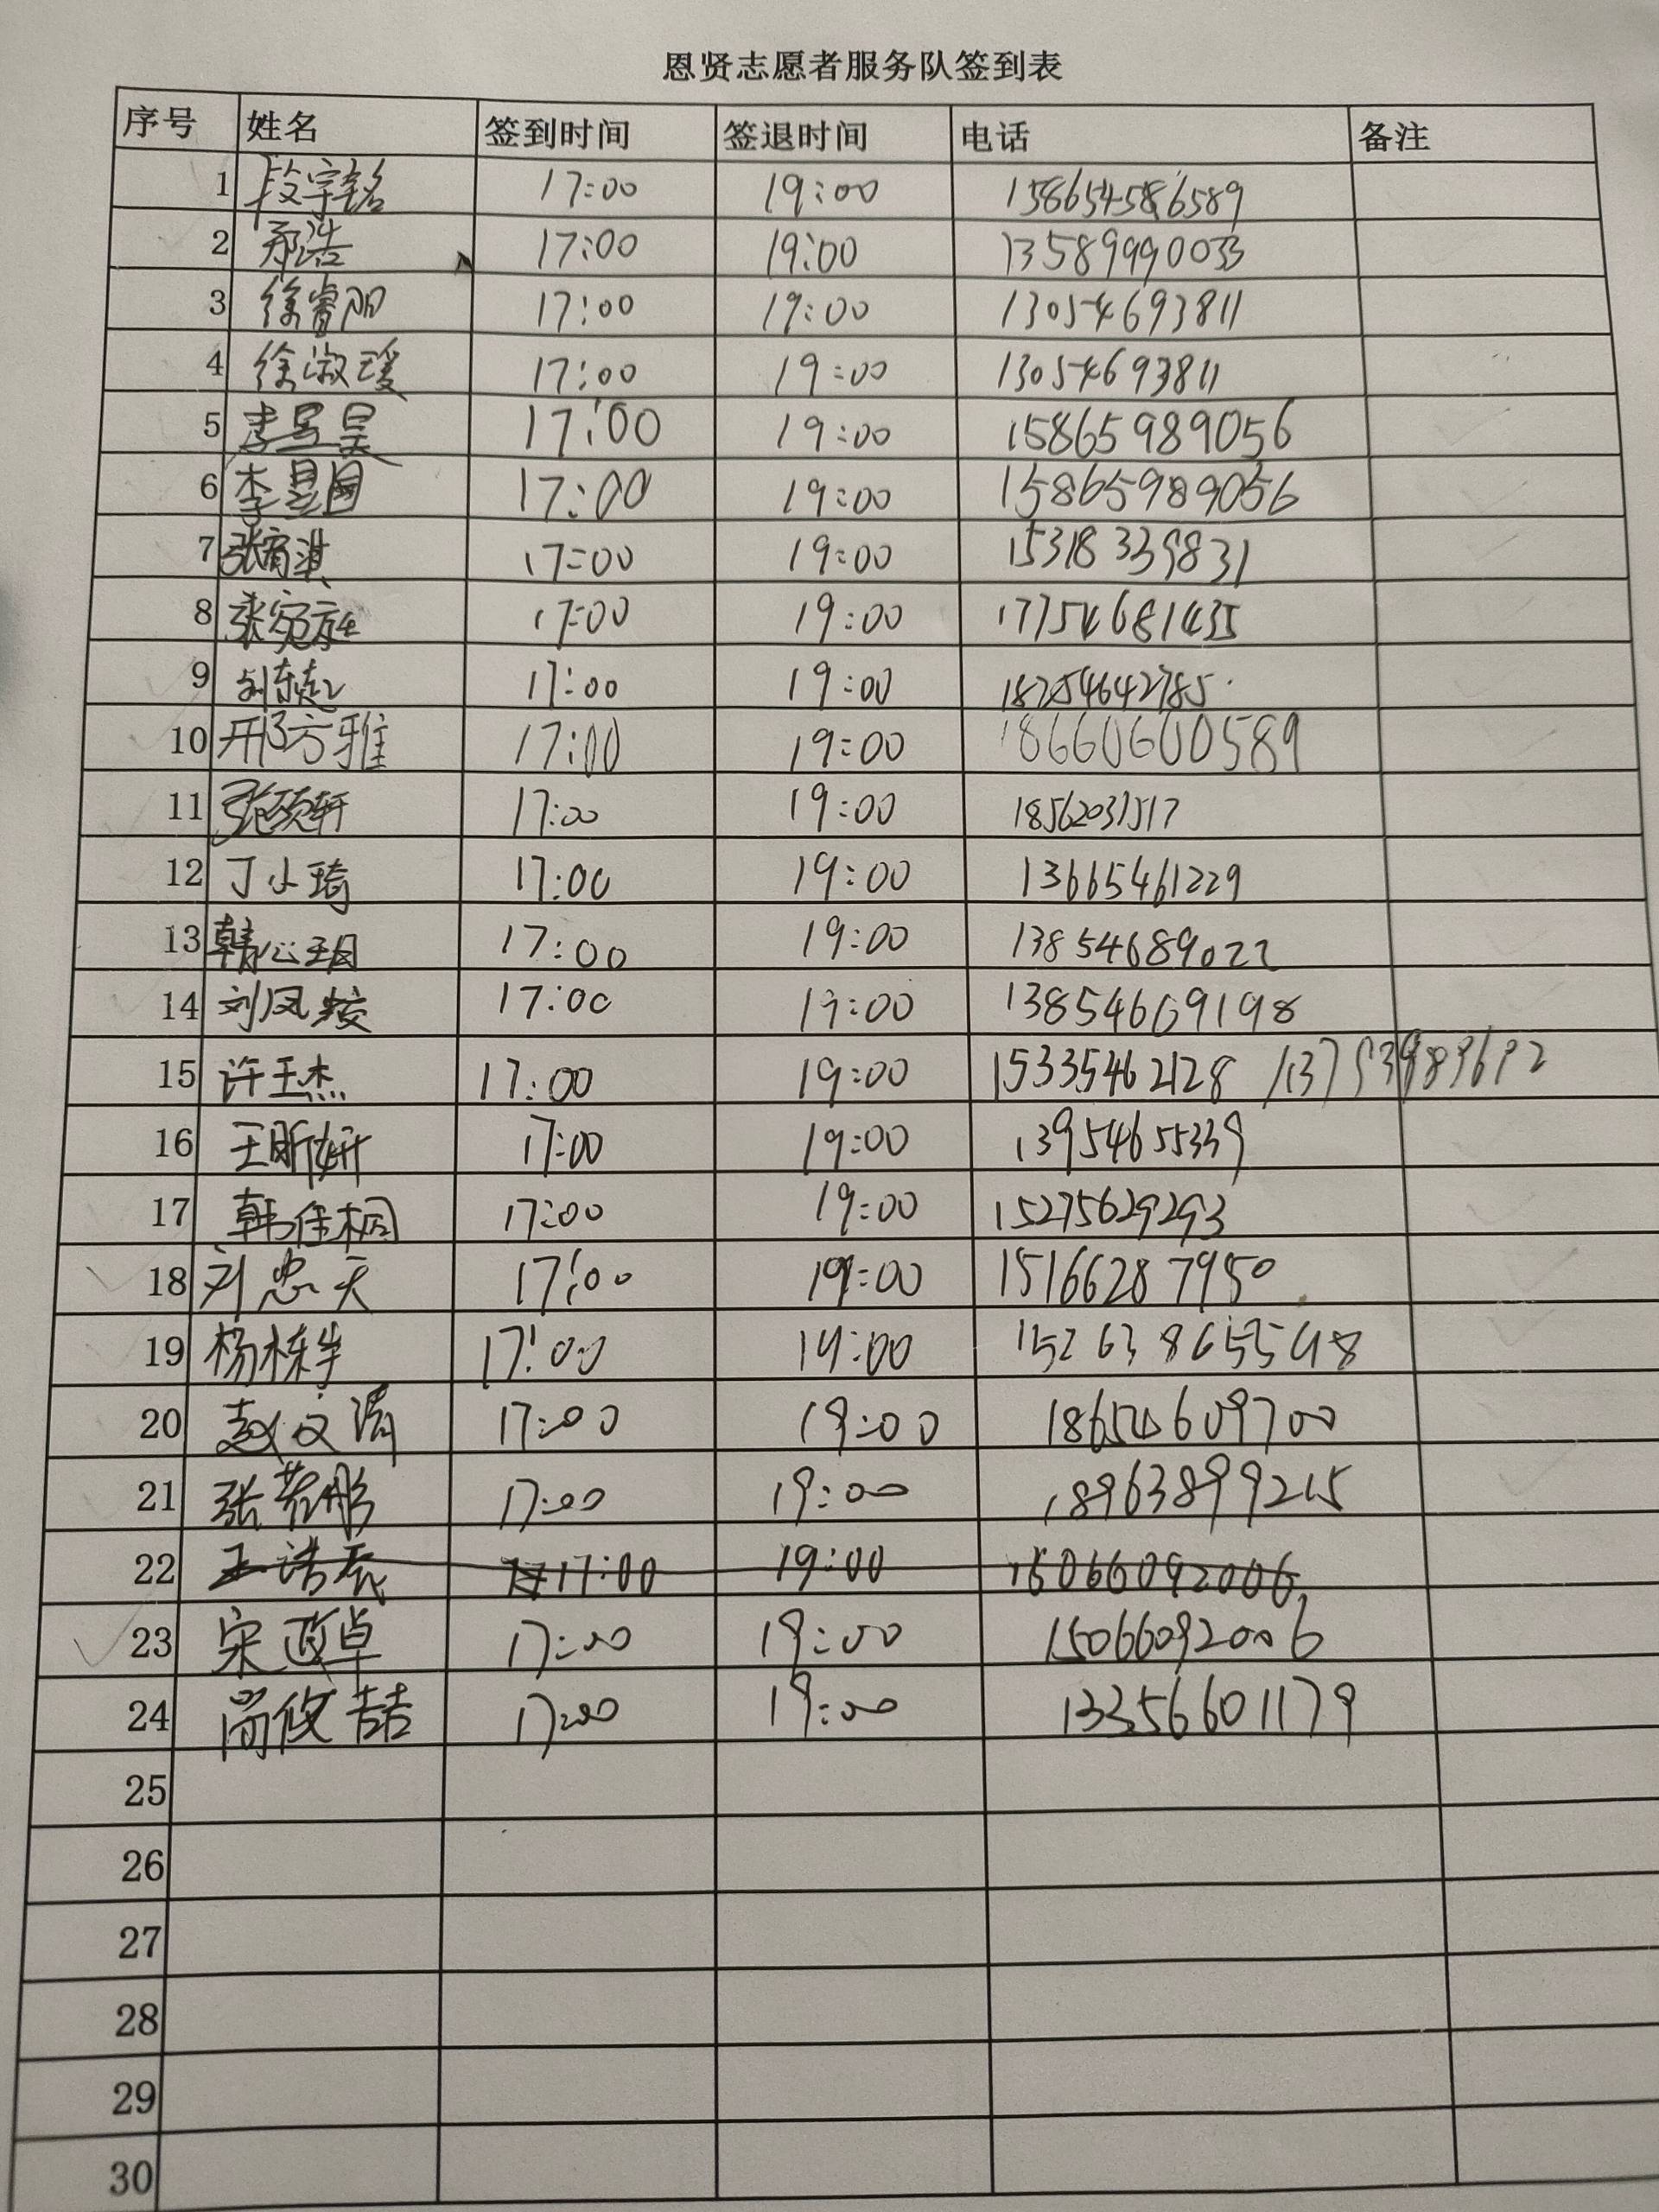 恩贤志愿者服务队签到表
序号 姓名 签到时间 签退时间 电话 备注
1 段宇铭 17:00 19:00
2 邴浩 17:00 19:00 13589990033
3 徐睿阳 17:00 19:00 13054693811
4 徐淑瑗 17:00 19:00 13054693811
5 李昊 17:00 19:00 15865989056
6 李 17:00 19:00 15865989056
7 张淇 17:00 19:00 15318339831
8 张宛 17:00 19:00 17754681435
9 刘东 17:00 19:00
10 邢方雅 17:00 19:00 18660600589
11 张颂轩 17:00 19:00 18562031517
12 丁小琦 17:00 19:00 13665461229
13 韩心玥 17:00 19:00 13854689022
14 刘凤姣 17:00 19:00 13854669198
15 许玉杰 17:00 19:00 15335462128 /13793989692
16 王昕妍 17:00 19:00 13954655339
17 韩佳桐 17:00 19:00 15275629293
18 刘忠天 17:00 19:00 15166287950
19 杨栋华 17:00 19:00 15263865598
20 赵文 17:00 19:00 18654609700
21 张彤 17:00 19:00 18963899215
22 王浩辰 17:00 19:00 15066092006
23 宋政卓 17:00 19:00 15066092006
24 尚攸喆 17:00 19:00 13356601179
25
26
27
28
29
30